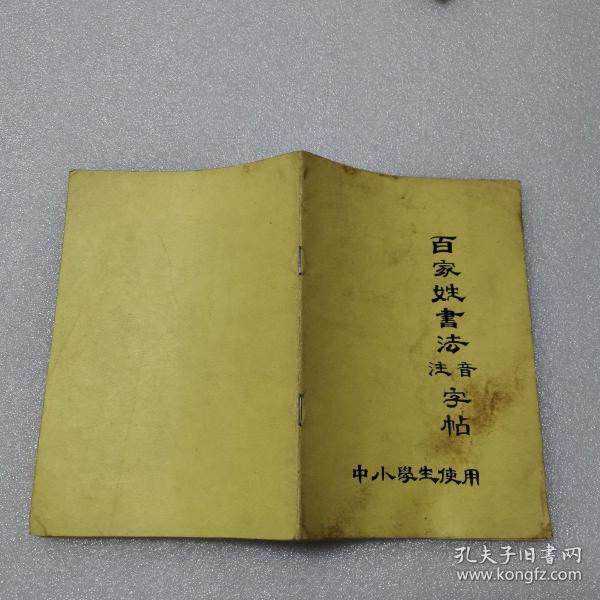 百家姓書法
注音
字帖
中小學生使用
孔夫子旧書网
www.kongfz.com